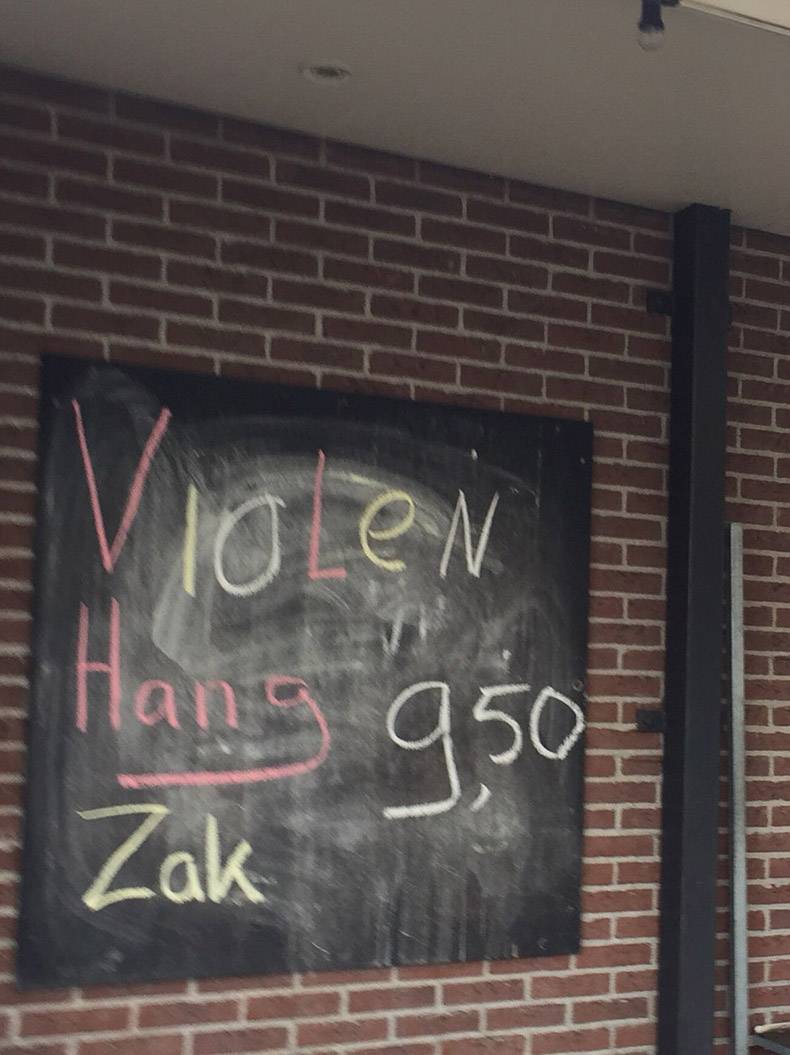 VIOLeN
Hang 9,50
Zak